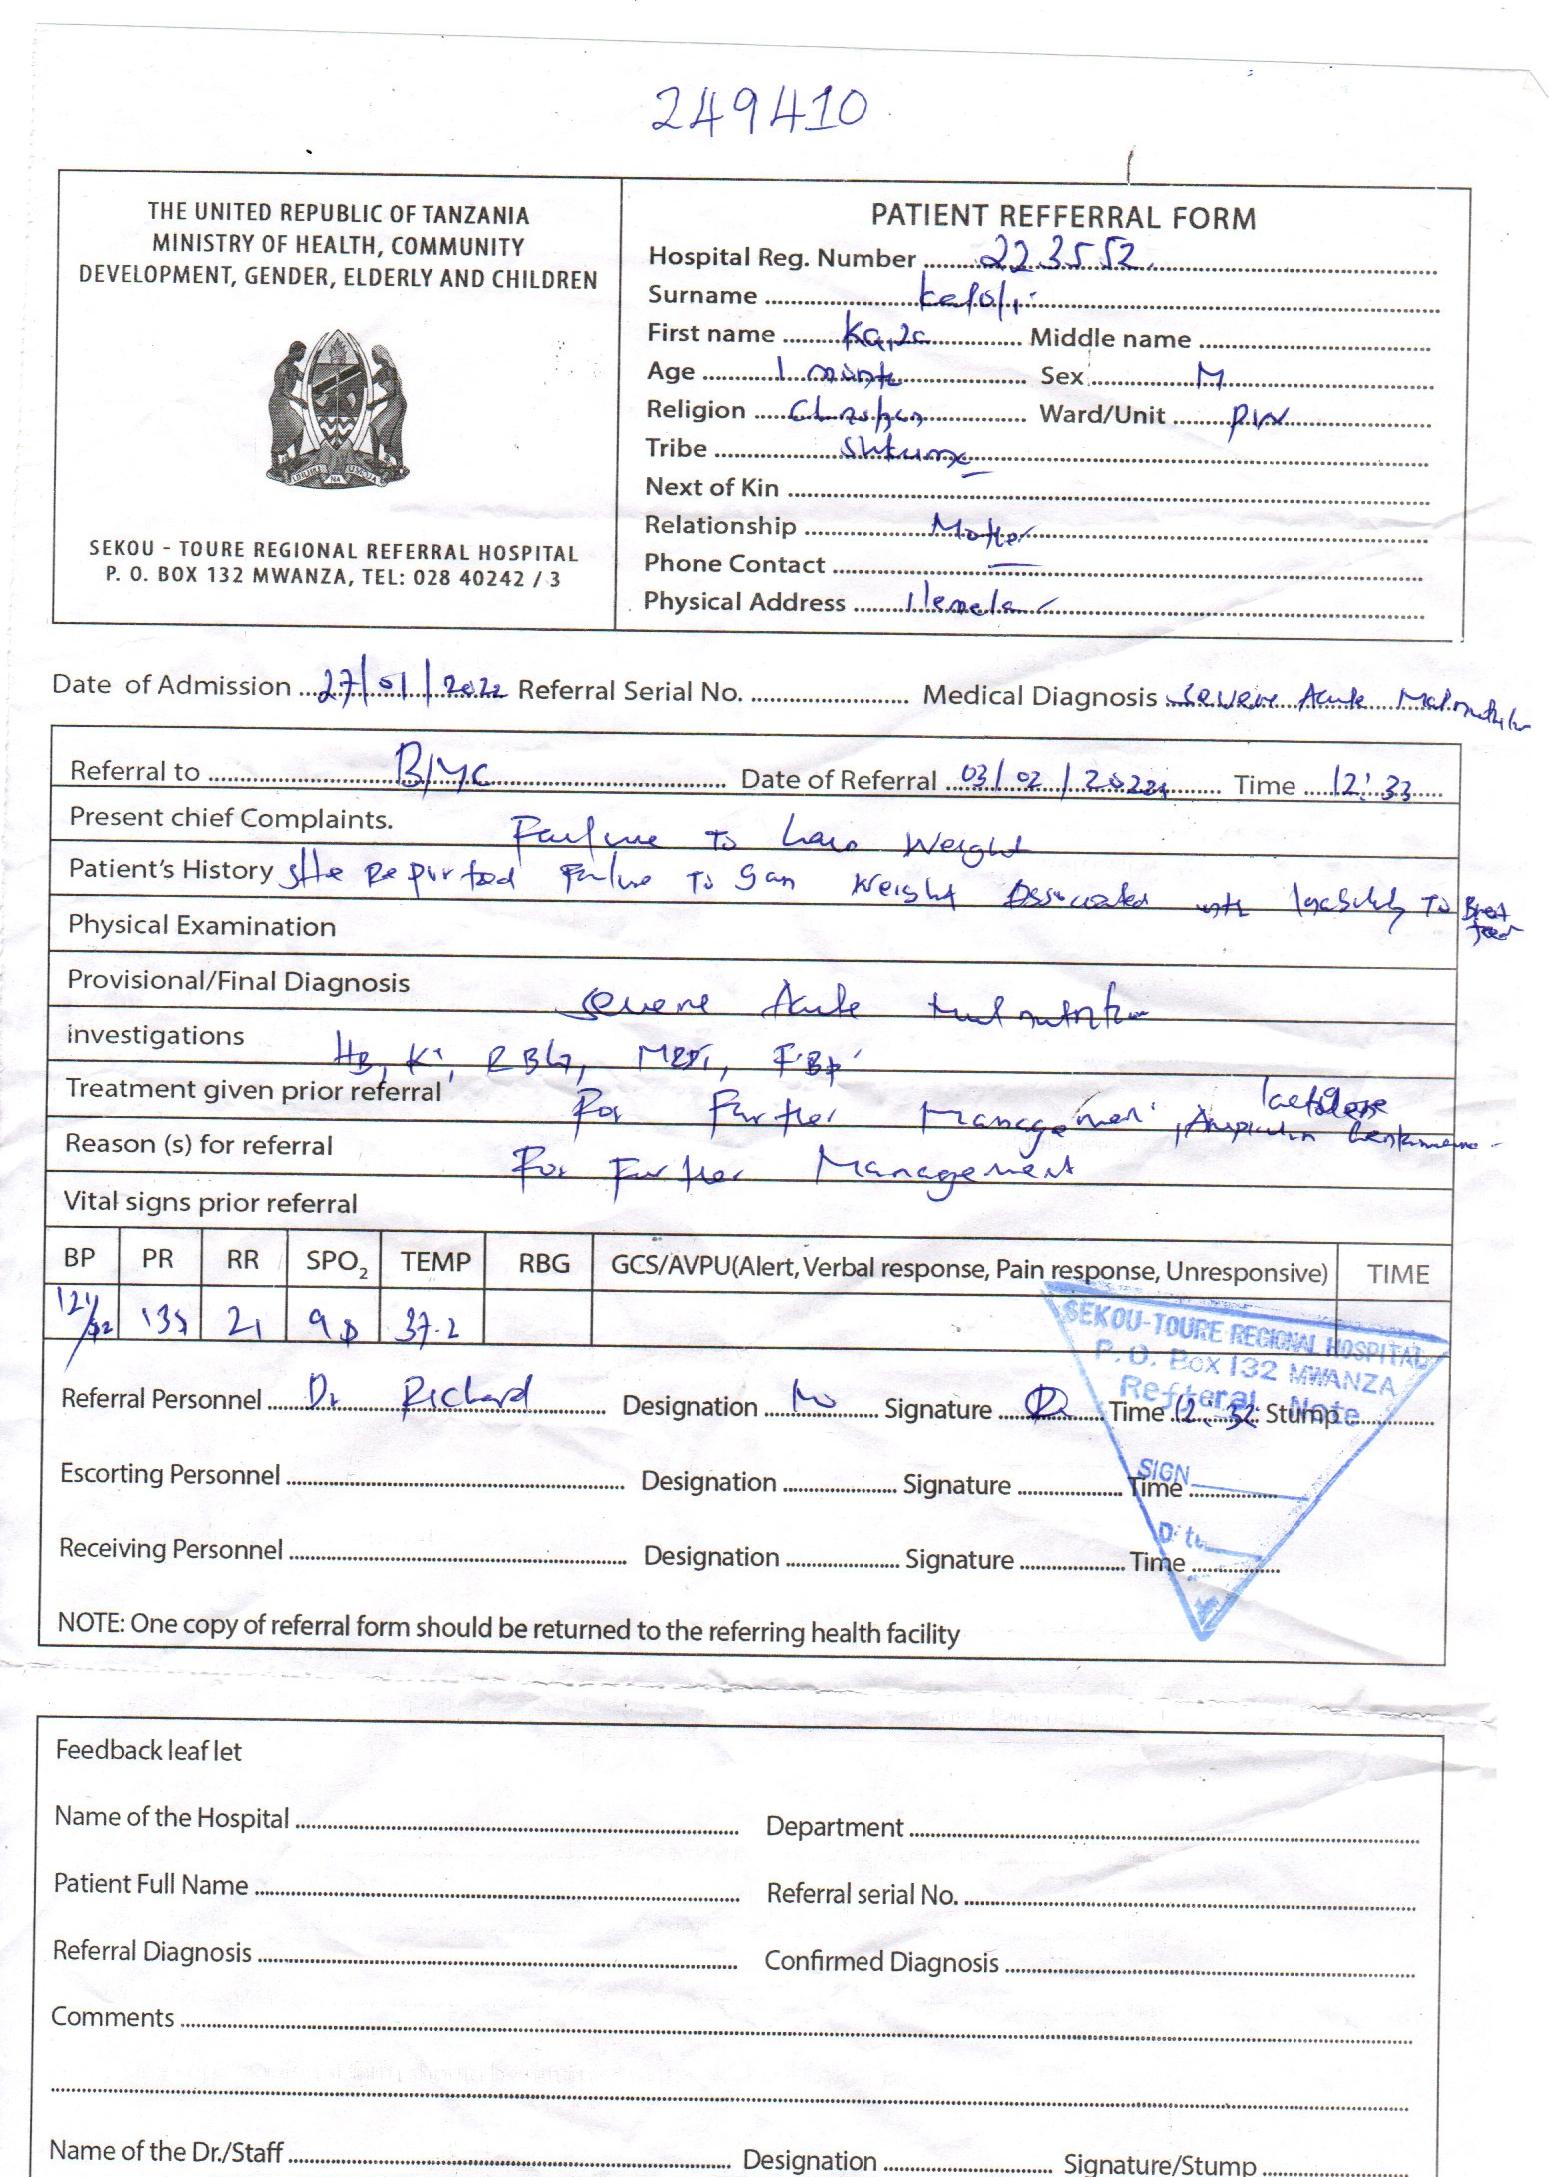 249410
THE UNITED REPUBLIC OF TANZANIA
MINISTRY OF HEALTH, COMMUNITY
DEVELOPMENT, GENDER, ELDERLY AND CHILDREN
SEKOU - TOURE REGIONAL REFERRAL HOSPITAL
P. O. BOX 132 MWANZA, TEL: 028 40242 / 3
PATIENT REFFERRAL FORM
Hospital Reg. Number 223552
Surname
First name Middle name
Age 1 month Sex M
Religion Ward/Unit PW
Tribe
Next of Kin
Relationship Mother
Phone Contact
Physical Address Ilemela
Date of Admission 27/01/2022 Referral Serial No. Medical Diagnosis Severe Acute Malnutrition
Referral to BMC Date of Referral 03/02/2022 Time 12:33
Present chief Complaints. Failure To Gain Weight
Patient's History She Reported Failure To gain weight Associated with Inability To Breast feed
Physical Examination
Provisional/Final Diagnosis Severe Acute Malnutrition
investigations HB, K+, RBG, FBP
Treatment given prior referral For Further Management, Ampicillin
Reason (s) for referral For Further Management
Vital signs prior referral
BP PR RR SPO2 TEMP RBG GCS/AVPU(Alert, Verbal response, Pain response, Unresponsive) TIME
21 37.2
Referral Personnel Dr Richard Designation Signature Time 12:32 Stump
Escorting Personnel Designation Signature Time
Receiving Personnel Designation Signature Time
SEKOU-TOURE REGIONAL HOSPITAL
P.O. Box 132 MWANZA
Refferal Note
SIGN
NOTE: One copy of referral form should be returned to the referring health facility
Feedback leaf let
Name of the Hospital Department
Patient Full Name Referral serial No.
Referral Diagnosis Confirmed Diagnosis
Comments
Name of the Dr./Staff Designation Signature/Stump